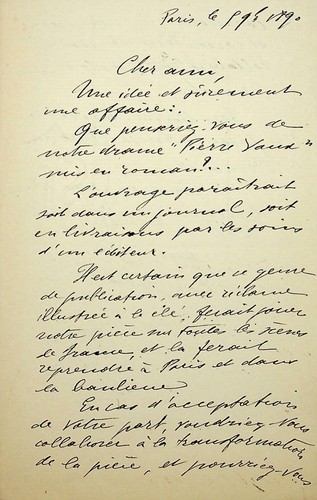 Paris, le 5 9bre 1890
Cher ami,
Une idée et sûrement
une affaire:.
Que penseriez-vous de
notre drame "Pierre Vaux"
mis en roman?...
L'ouvrage paraîtrait
soit dans un journal, soit
en livraisons par les soins
d'un éditeur.
Il est certain que ce genre
de publication, avec réclame
illustrée à la clé, ferait jouer
notre pièce sur toutes les scènes
de France, et la ferait
reprendre à Paris et dans
la banlieue
En cas d'acceptation
de votre part, voudriez-vous
collaborer à la transformation
de la pièce, et pourriez-vous